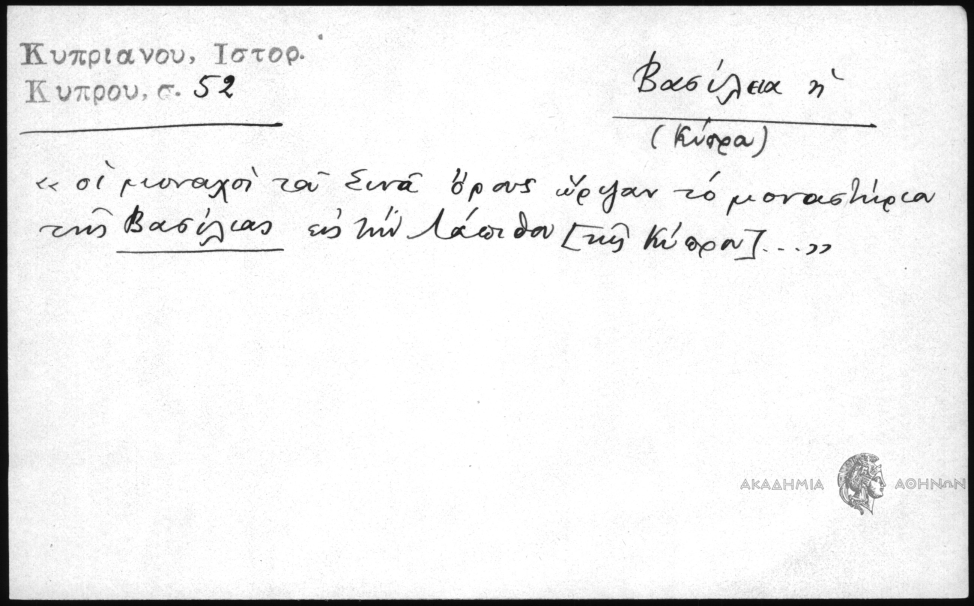 Κυπριανου, Ιστορ.
Κυπρου, σ. 52
Βασίλεια ἡ
(Κύπρο)
«οἱ μοναχοὶ τοῦ Σινᾶ Ὄρους ὥριζαν τὸ μοναστήριο
τῆς Βασίλιας εἰς τὴν Λάπιθον [τῆς Κύπρου]...»
ΑΚΑΔΗΜΙΑ ΑΘΗΝΩΝ